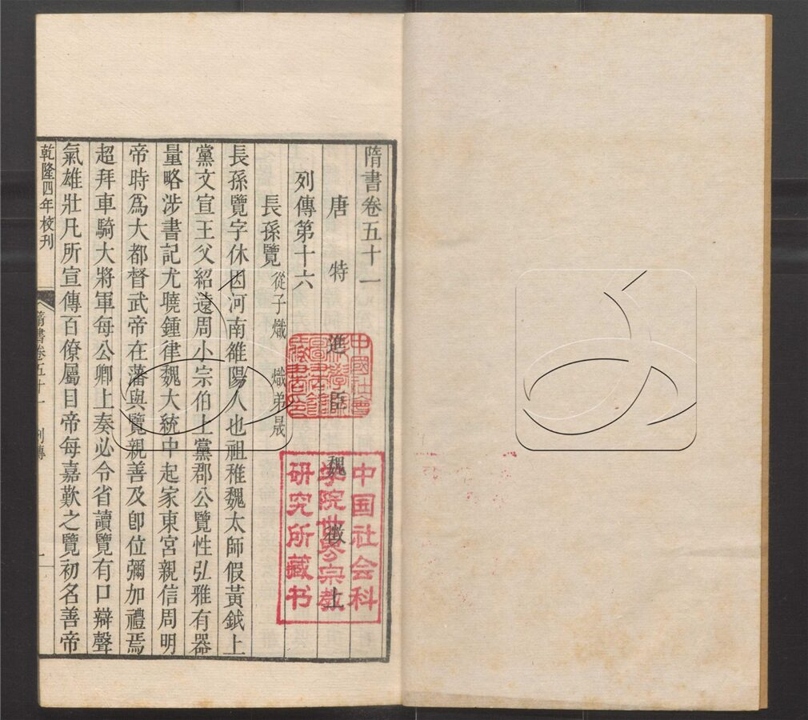 隋書卷五十一
唐特進臣魏徵上
列傳第十六
長孫覽 從子熾 熾弟晟
長孫覽字休因河南雒陽人也祖稚魏太師假黃鉞上
黨文宣王父紹遠周小宗伯上黨郡公覽性弘雅有器
量略涉書記尤曉鍾律魏大統中起家東宮親信周明
帝時爲大都督武帝在藩與覽親善及卽位彌加禮焉
超拜車騎大將軍每公卿上奏必令省讀覽有口辯聲
氣雄壯凡所宣傳百僚屬目帝每嘉歎之覽初名善帝
乾隆四年校刊
隋書卷五十一 列傳 一
中國社會
科學院
圖書館
藏書
中国社会科
学院世界宗教
研究所藏书